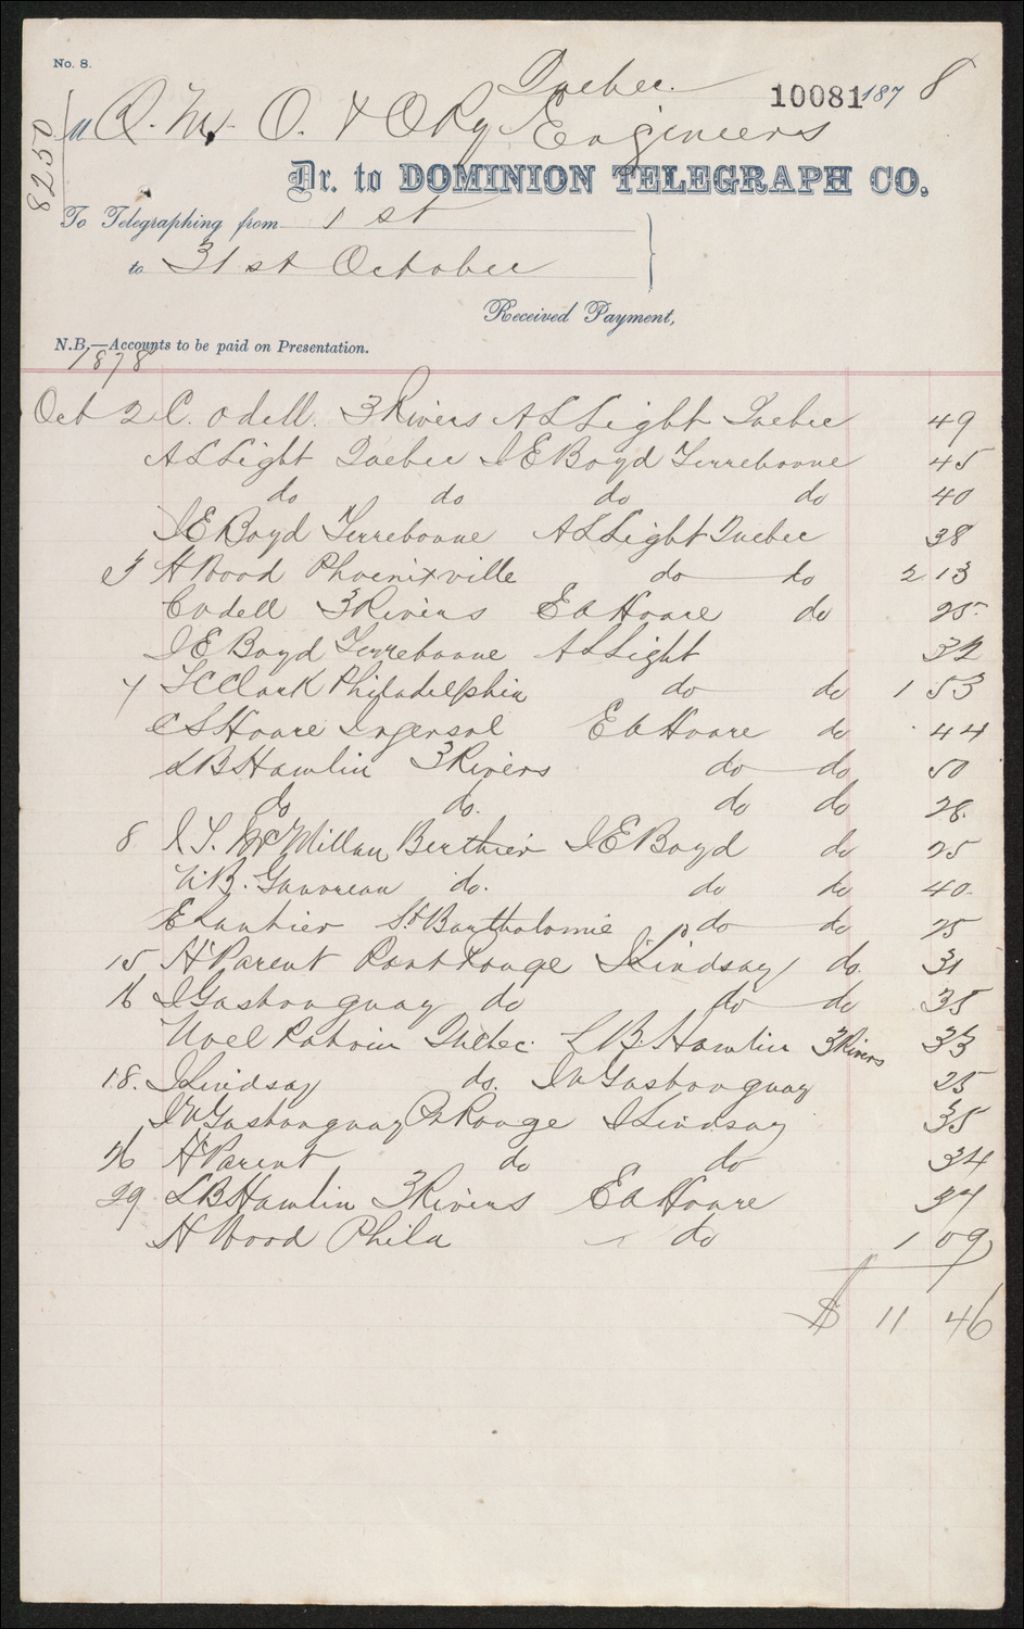 No. 8.
Quebec. 10081 187 8
8250
M Q. M. O. & O Ry Engineers
Dr. to DOMINION TELEGRAPH CO.
To Telegraphing from 1 st
to 31 st October
Received Payment,
N.B.—Accounts to be paid on Presentation.
1878
Oct 2 C. Odell. 3 Rivers A L Light Quebec 49
A L Light Quebec I E Boyd Terrebonne 45
do do do do 40
I E Boyd Terrebonne A L Light Quebec 38
3 H Wood Phoenixville do do 2 13
C Odell 3 Rivers E A Hoare do 25
I E Boyd Terrebonne A L Light 32
7 T C Clark Philadelphia do do 1 53
C S Hoare Ingersol E A Hoare do 44
L B Hamlin 3 Rivers do do 50
do do. do do 28.
8 McMillan Berthier I E Boyd do 25
do. do do 40
St Bartholomie do do 25
15 H Parent Pont Rouge J Lindsay do. 31
16 J Gastonguay do do do 35
Noel Potvin Quebec. L B. Hamlin 3 Rivers 33
18. J Lindsay do. J W Gastonguay 25
J W Gastonguay Pt Rouge J Lindsay 35
26 H Parent do do 34
29 L B Hamlin 3 Rivers E A Hoare 37
H Wood Phila do 1 09
$ 11 46